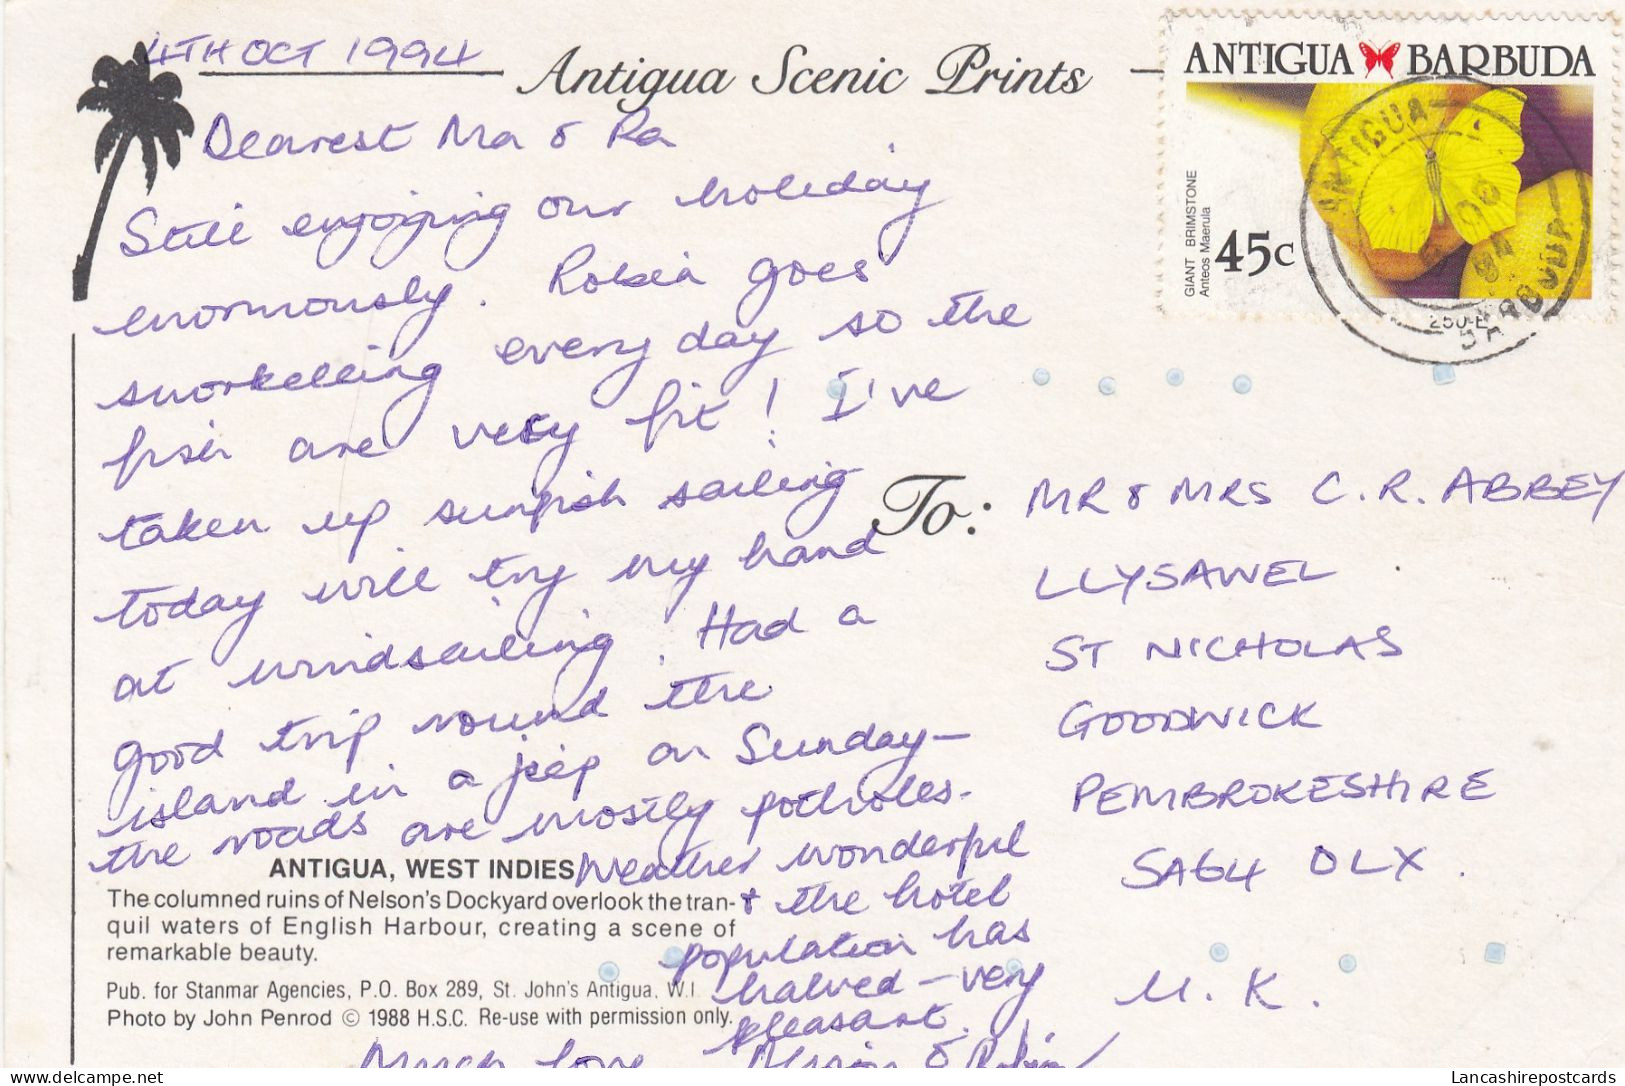 4TH OCT 1994
Antigua Scenic Prints
ANTIGUA BARBUDA
GIANT BRIMSTONE
Anteos Maerula
45c
ANTIGUA
BARBUDA
Dearest Ma & Pa
Still enjoying our holiday
enormously. Robin goes
snorkelling every day so the
fish are very fit! I've
taken up sunfish sailing
today will try my hand
at windsailing. Had a
good trip round the
island in a jeep on Sunday—
the roads are mostly potholes.
Weather wonderful
& the hotel
population has
halved - very
pleasant.
Much love
& Robin
To:
MR & MRS C.R. ABBEY
LLYSAWEL
ST NICHOLAS
GOODWICK
PEMBROKESHIRE
SA64 0LX.
U.K.
ANTIGUA, WEST INDIES
The columned ruins of Nelson's Dockyard overlook the tran-
quil waters of English Harbour, creating a scene of
remarkable beauty.
Pub. for Stanmar Agencies, P.O. Box 289, St. John's Antigua. W.I.
Photo by John Penrod © 1988 H.S.C. Re-use with permission only.
delcampe.net
Lancashirepostcards